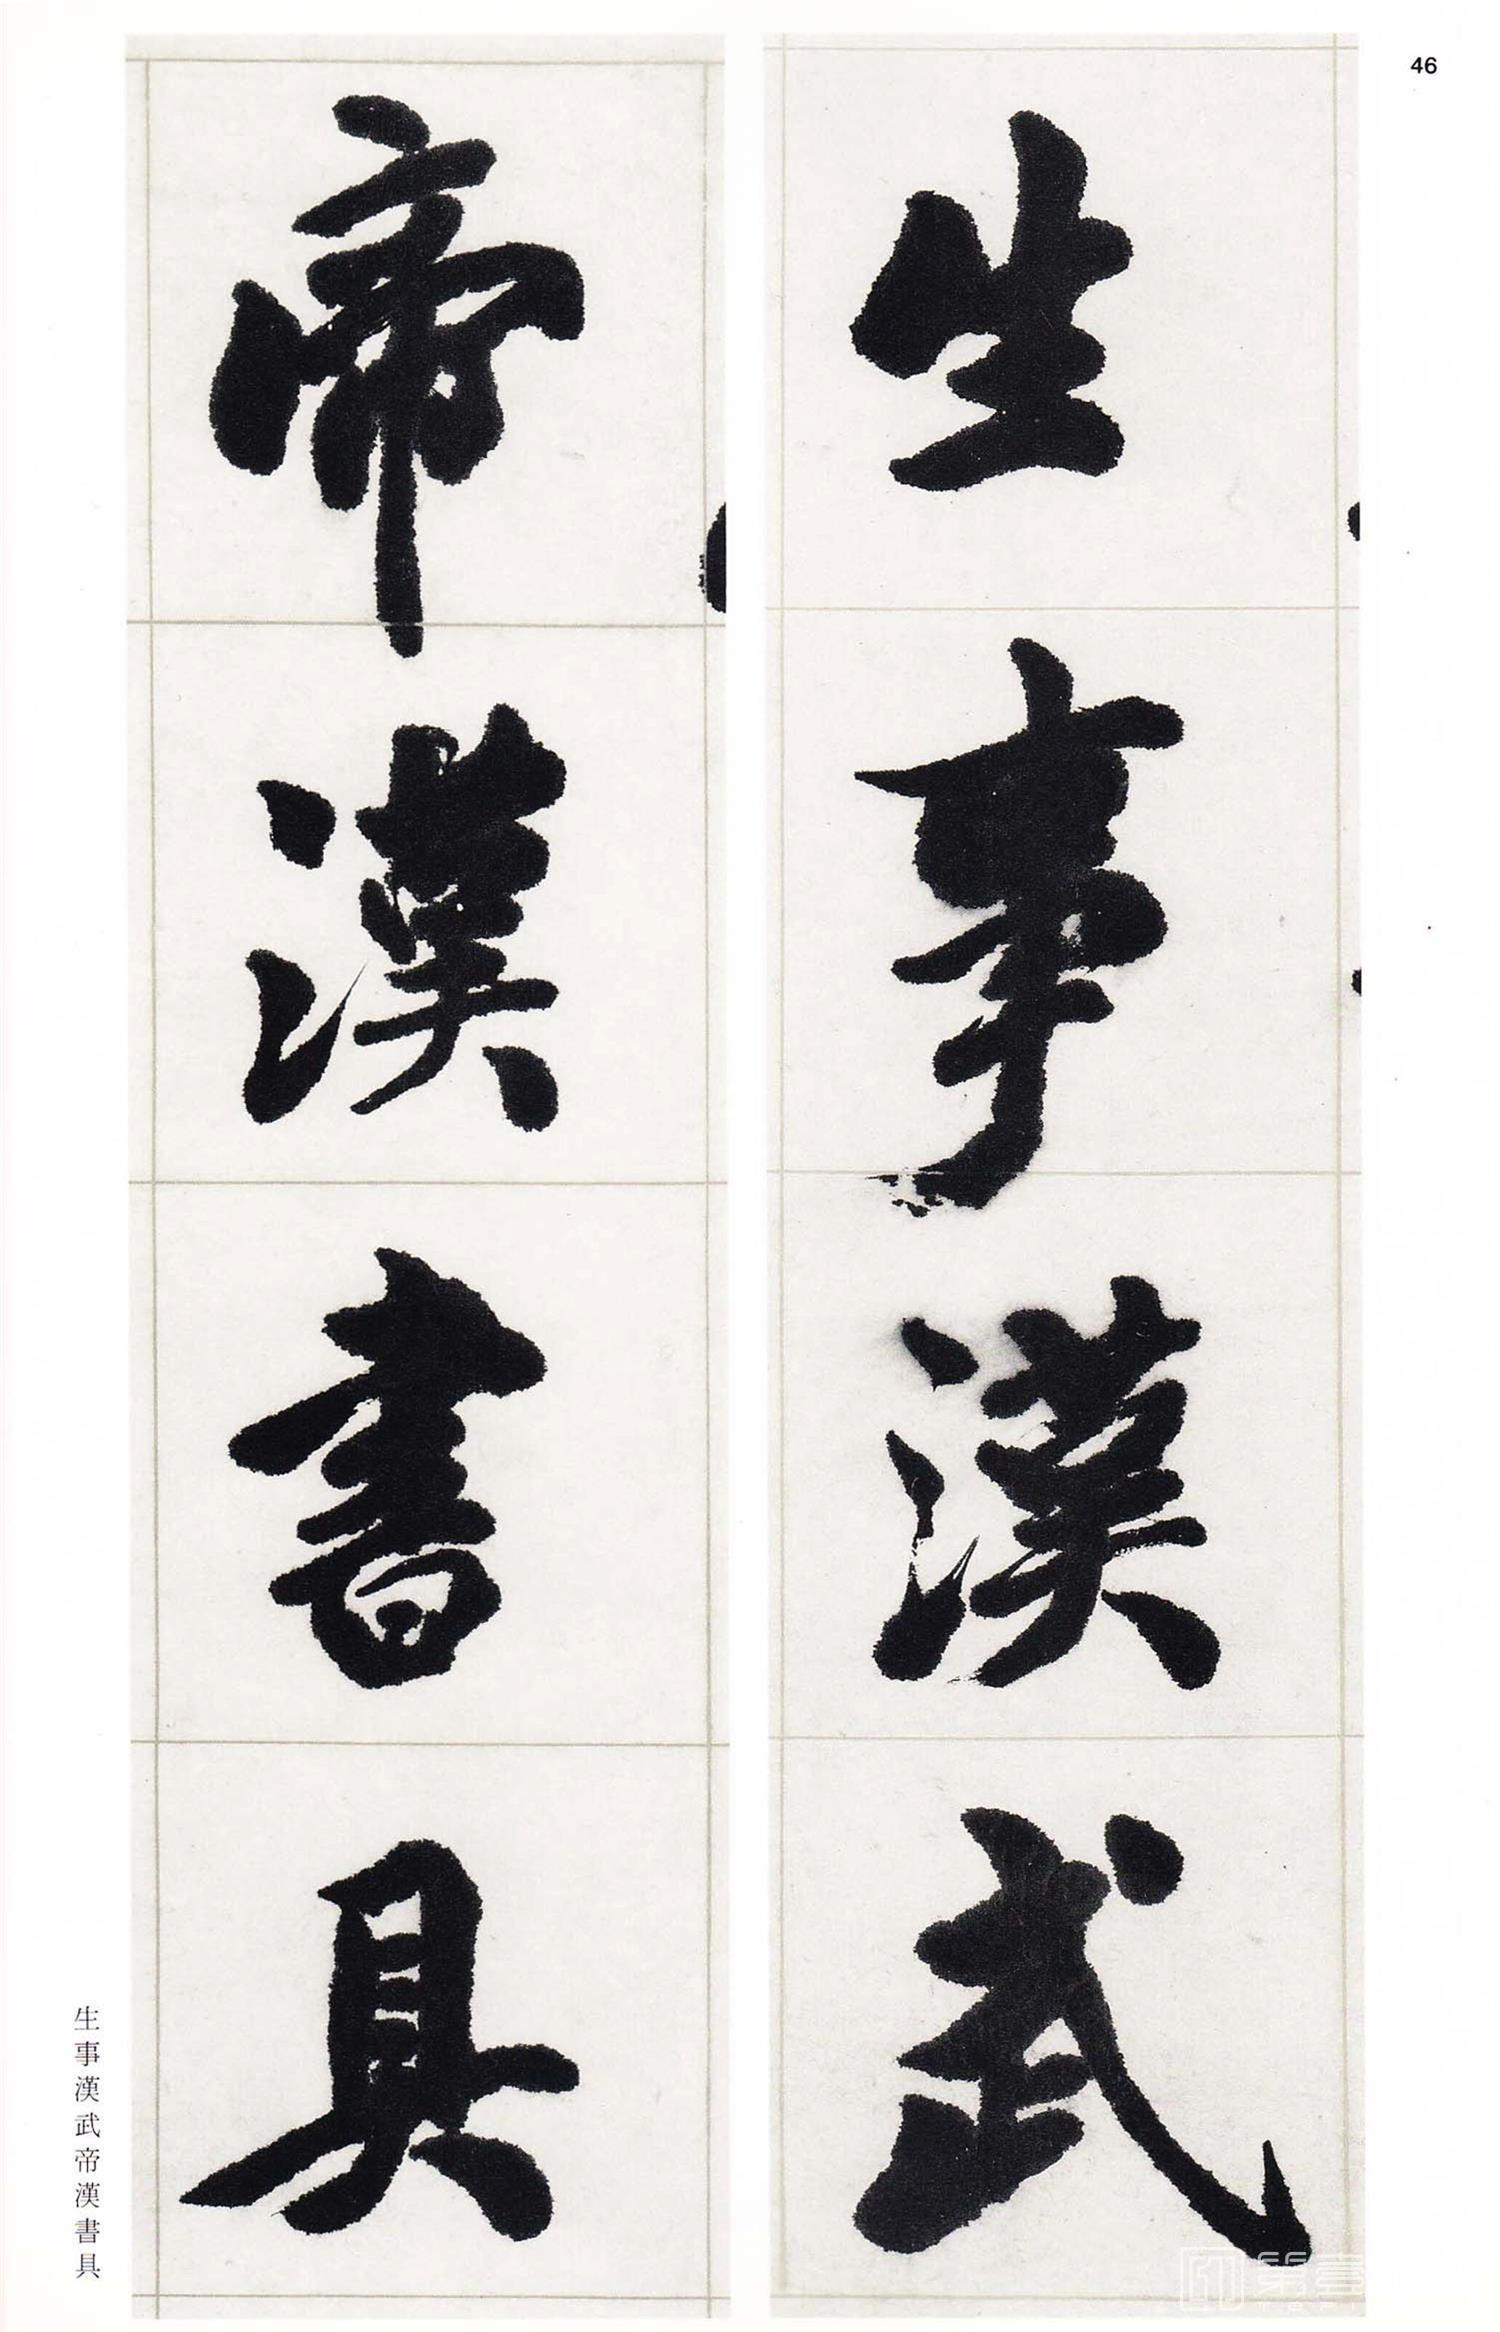 46
生事漢武
帝漢書具
生事漢武帝漢書具